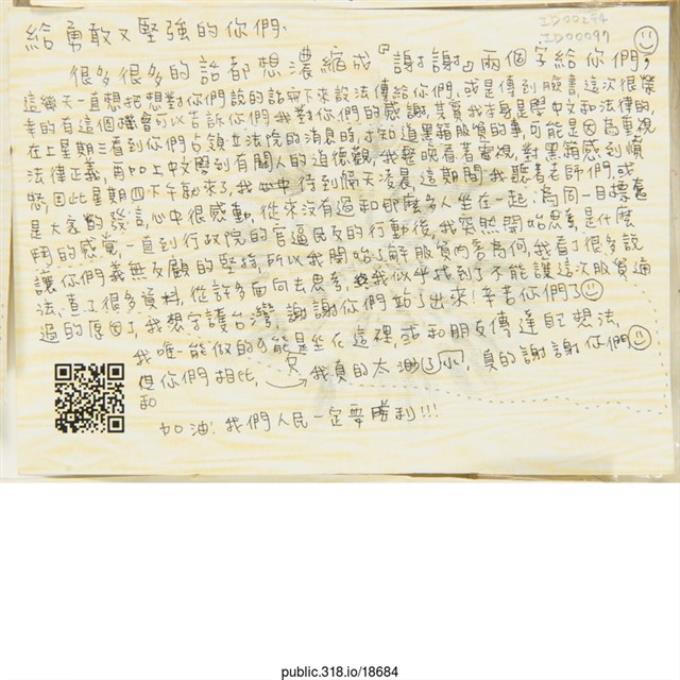 給勇敢又堅強的你們:
ID00294
ID00097
很多很多的話都想濃縮成『謝謝』兩個字給你們,
這幾天一直想把想對你們說的話寫下來設法傳給你們,或是傳到臉書,這次很榮
幸的有這個機會可以告訴你們我對你們的感謝,其實我本身是學中文和法律的,
在上星期三看到你們占領立法院的消息時,才知道黑箱服貿的事,可能是因為重視
法律正義,再加上中文學到有關人的道德觀,我整晚看著電視,對黑箱感到憤
怒,因此星期四下午動來了,我心中待到隔天凌晨,這期間我聽著老師們,或
是大家的發言,心中很感動,從來沒有過和那麼多人坐在一起,為同一目標奮
鬥的感覺,一直到行政院的官逼民反的行動後,我突然開始思考,是什麼
讓你們義無反顧的堅持,所以我開始了解服貿內容為何,我看了很多說
法、查了很多資料,從許多面向去思考,我似乎找到了不能讓這次服貿通
過的原因了,我想守護台灣,謝謝你們站了出來!辛苦你們了
我唯一能做的可能只是坐在這裡,或和朋友傳達自己想法,
但和你們相比,我真的太渺小,真的謝謝你們
加油!我們人民一定要勝利!!!
public.318.io/18684